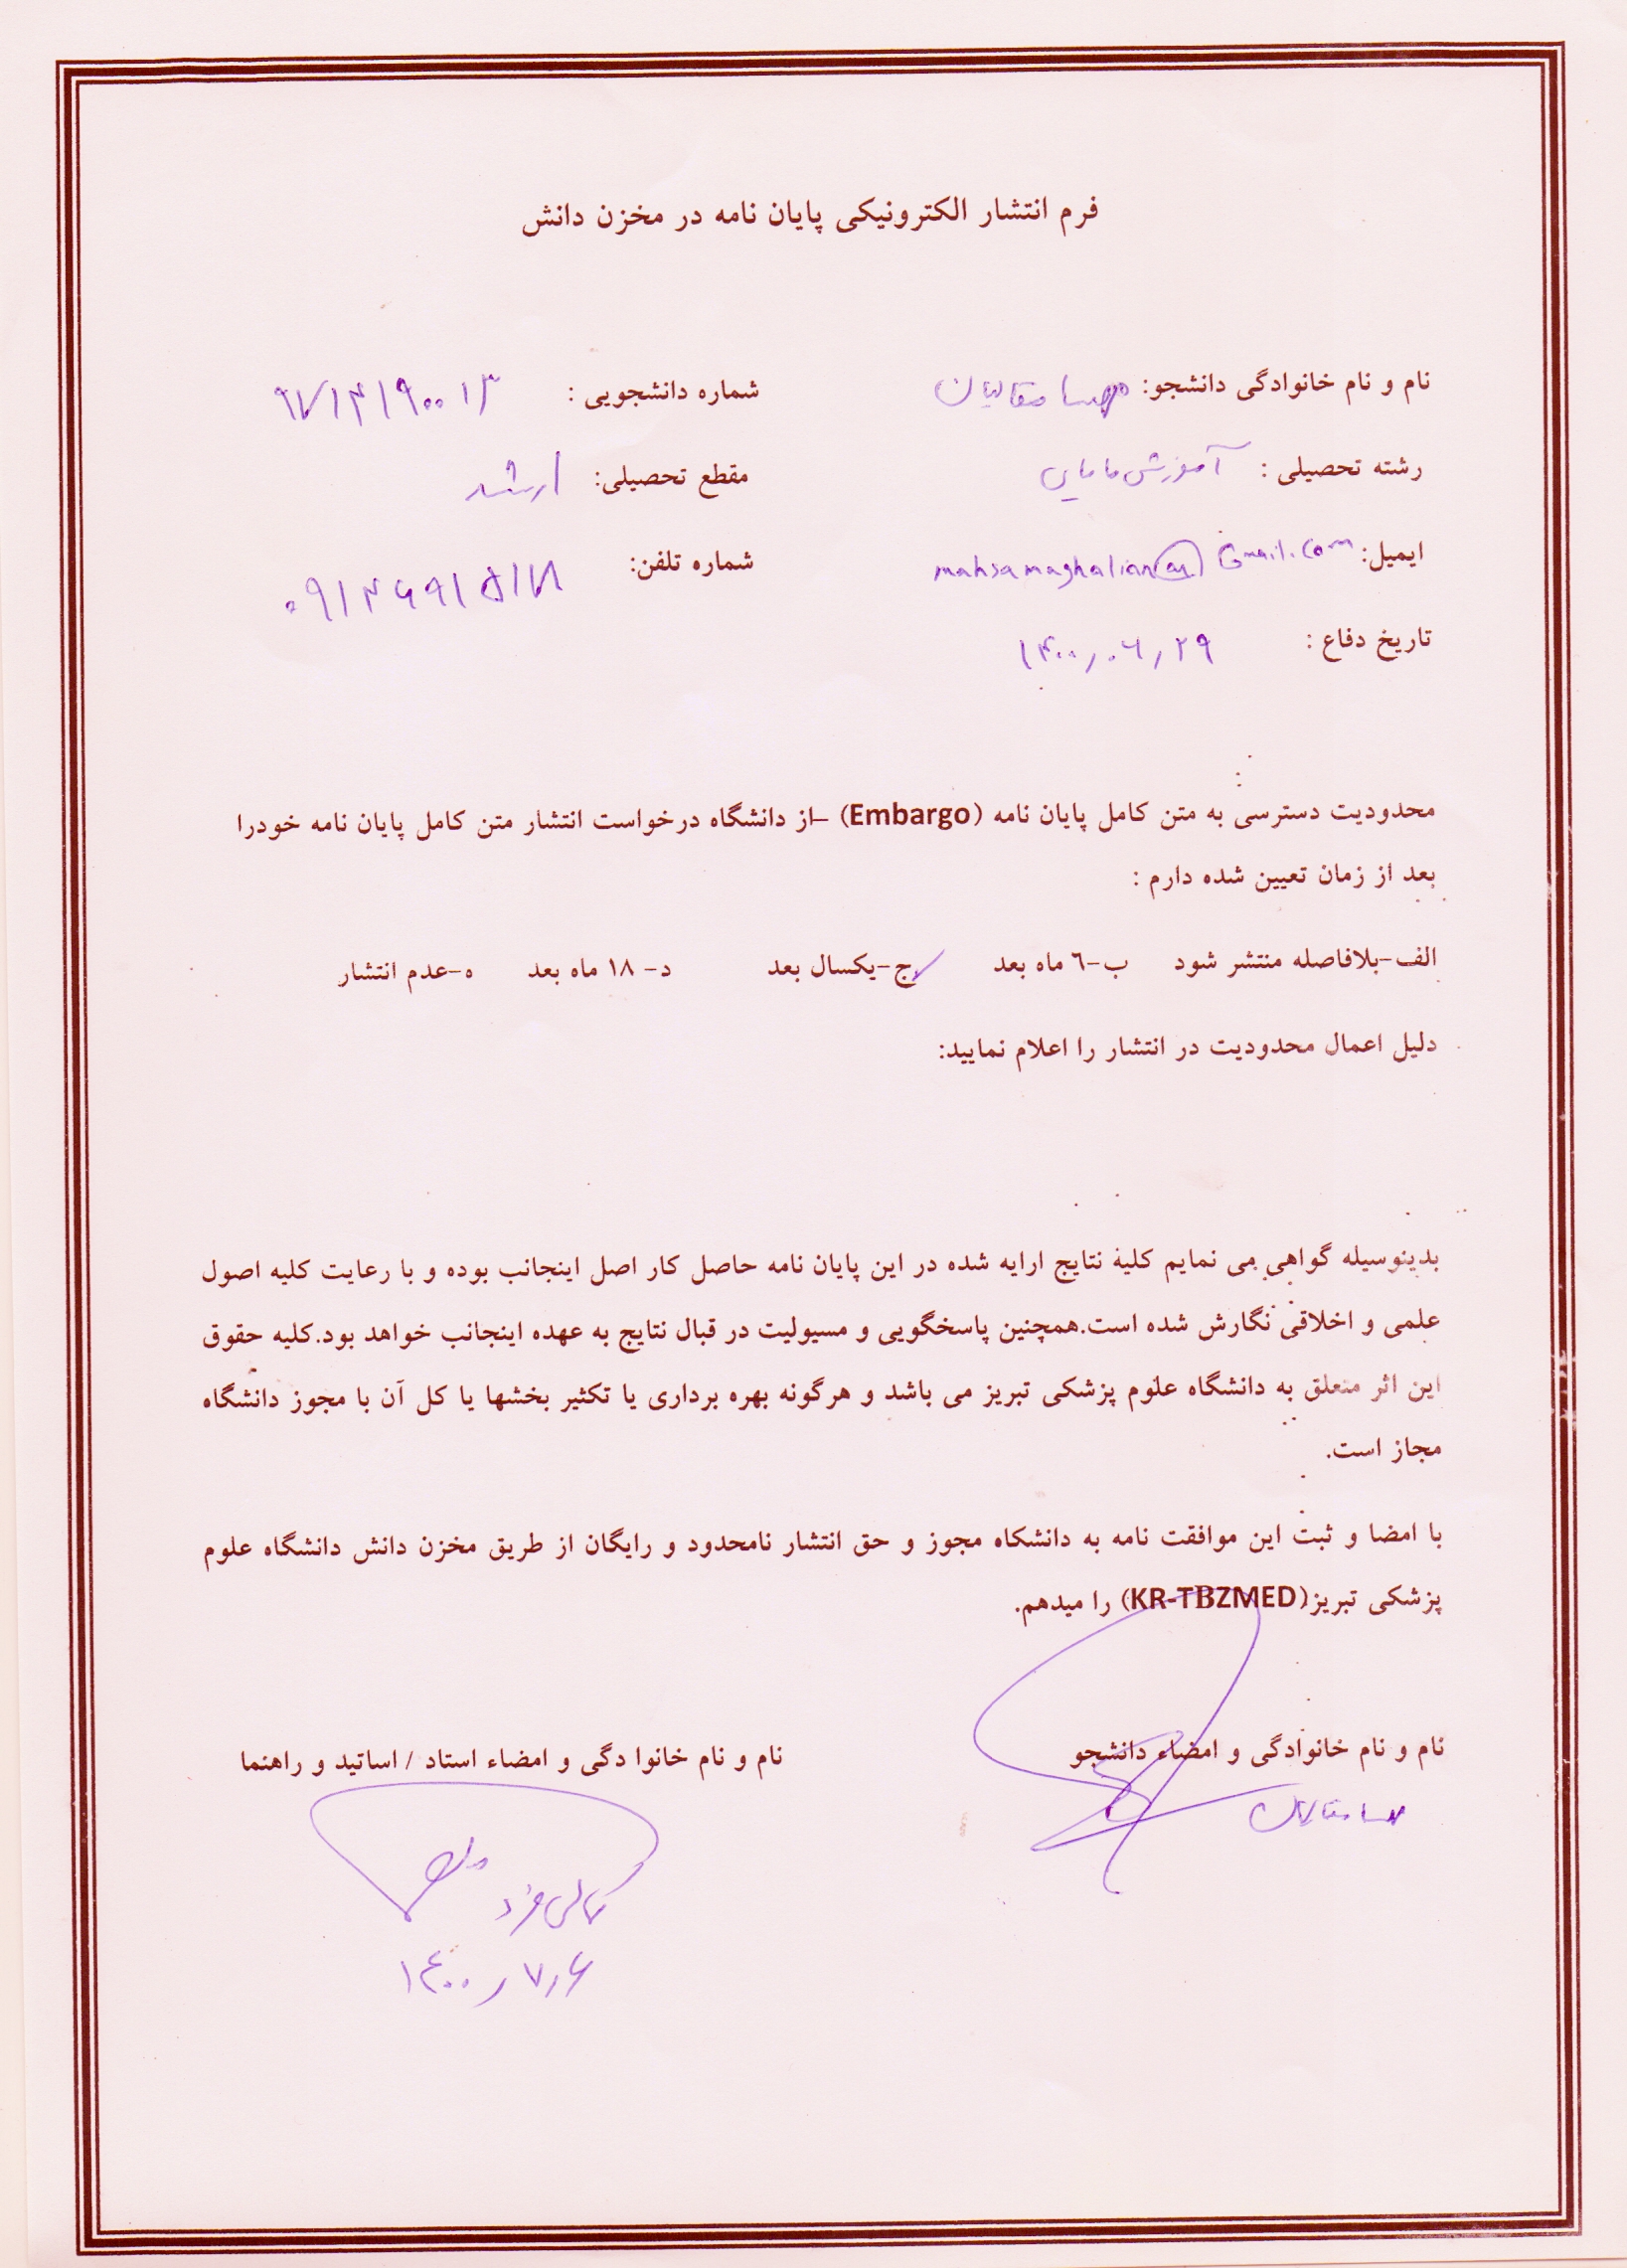 فرم انتشار الکترونیکی پایان نامه در مخزن دانش
نام و نام خانوادگی دانشجو: مهسا مقالیان شماره دانشجویی :
رشته تحصیلی : آموزش مامایی مقطع تحصیلی: ارشد
ایمیل: mahsamaghalian@Gmail.com شماره تلفن:
تاریخ دفاع : ۱۴۰۰,۰۶,۲۹
محدودیت دسترسی به متن کامل پایان نامه (Embargo) –از دانشگاه درخواست انتشار متن کامل پایان نامه خودرا
بعد از زمان تعیین شده دارم :
الف-بلافاصله منتشر شود ب-٦ ماه بعد ج-یکسال بعد د- ۱۸ ماه بعد ه-عدم انتشار
دلیل اعمال محدودیت در انتشار را اعلام نمایید:
بدینوسیله گواهی می نمایم کلیه نتایج ارایه شده در این پایان نامه حاصل کار اصل اینجانب بوده و با رعایت کلیه اصول
علمی و اخلاقی نگارش شده است.همچنین پاسخگویی و مسیولیت در قبال نتایج به عهده اینجانب خواهد بود.کلیه حقوق
این اثر متعلق به دانشگاه علوم پزشکی تبریز می باشد و هرگونه بهره برداری یا تکثیر بخشها یا کل آن با مجوز دانشگاه
مجاز است.
با امضا و ثبت این موافقت نامه به دانشکاه مجوز و حق انتشار نامحدود و رایگان از طریق مخزن دانش دانشگاه علوم
پزشکی تبریز(KR-TBZMED) را میدهم.
نام و نام خانوادگی و امضاء دانشجو نام و نام خانوا دگی و امضاء استاد / اساتید و راهنما
مهسا مقالیان
۱۴۰۰,۷,۶